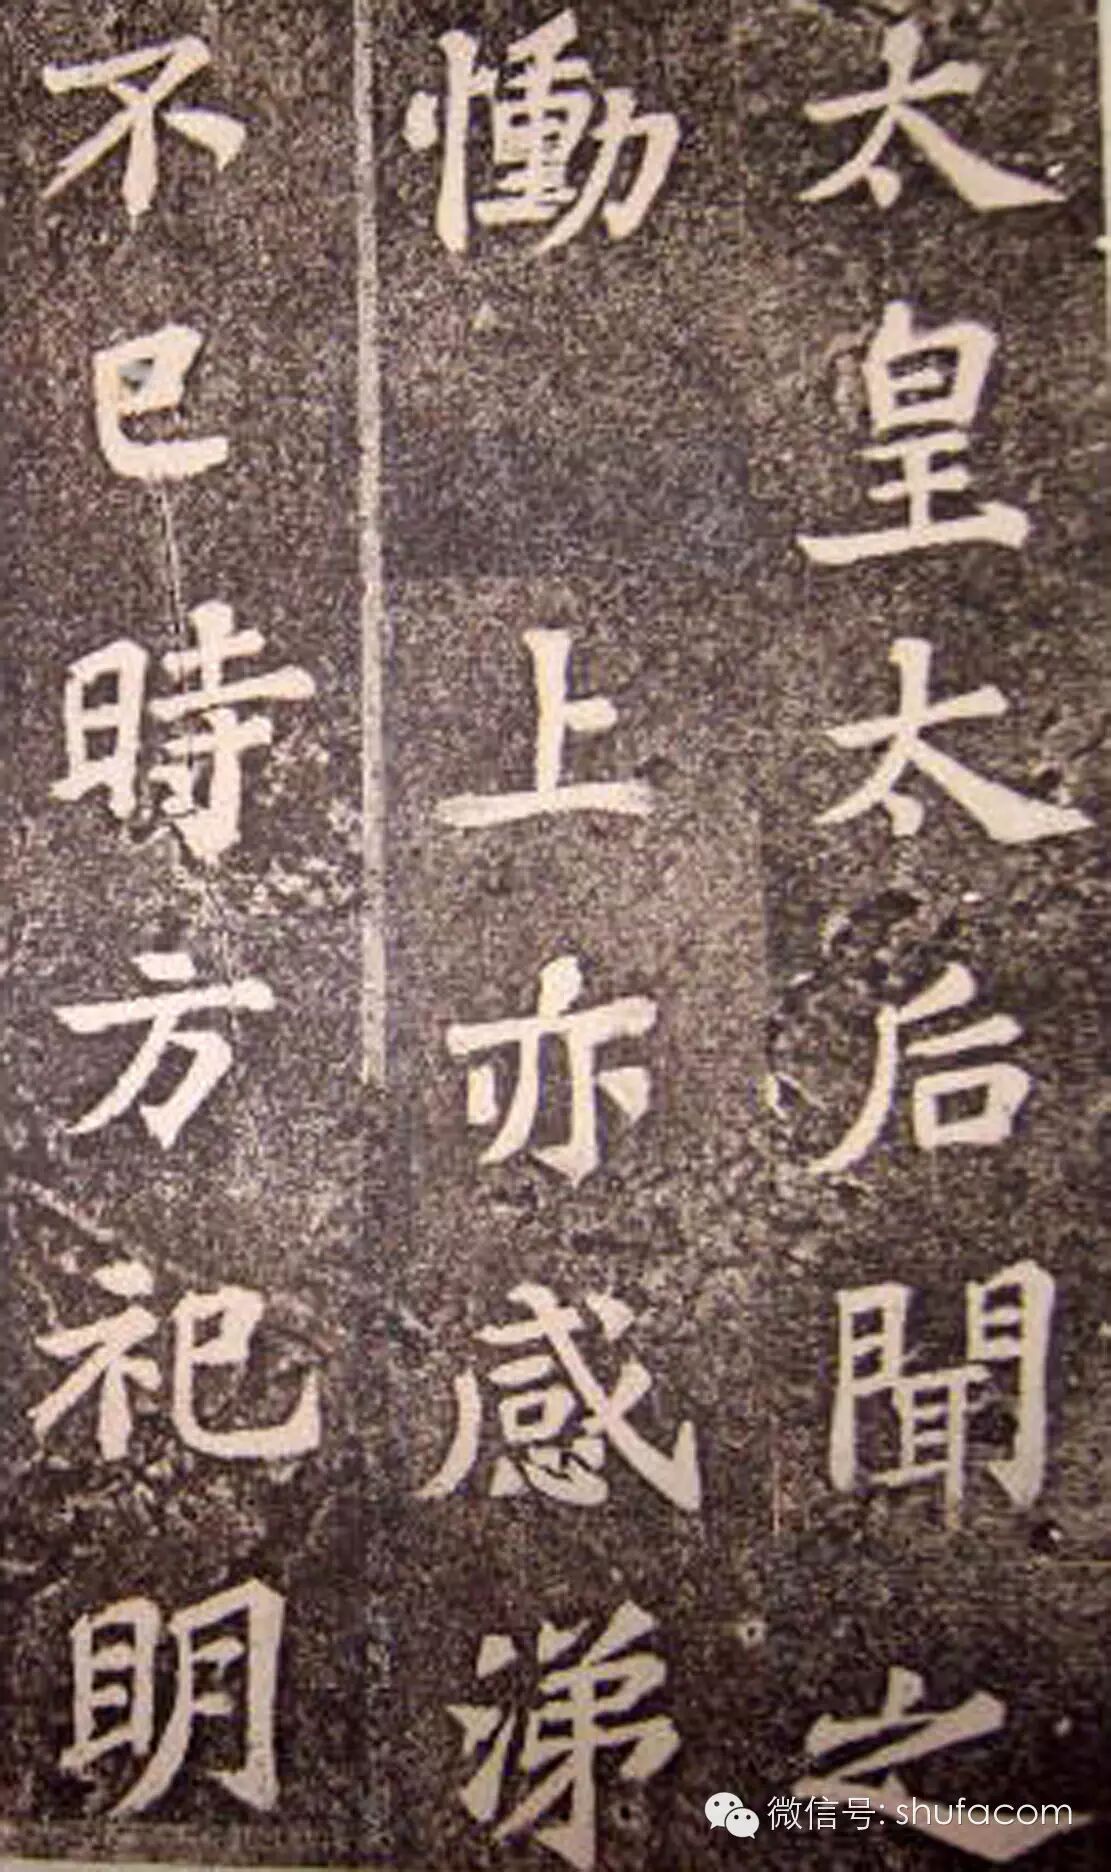 太皇太后聞之
慟 上亦感涕
不已時方祀明
微信号: shufacom